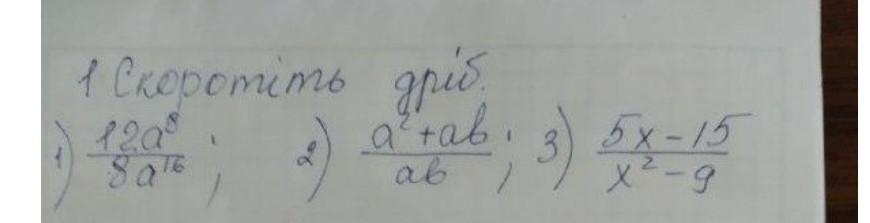 1 Скоротіть дріб.
1) 12a⁸/8a¹⁶; 2) a²+ab/ab; 3) 5x-15/x²-9